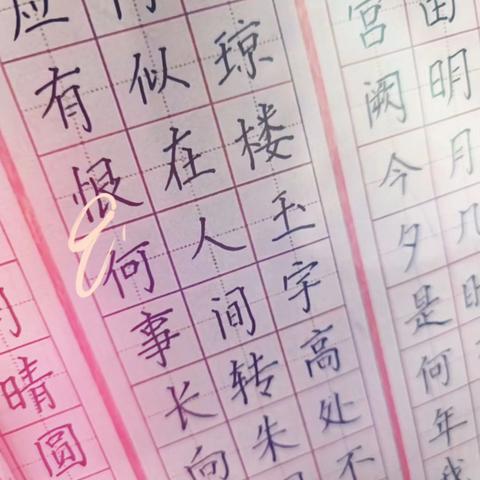 明月几时
宫阙今夕是何年我
琼楼玉宇高处不
似在人间转朱
应有恨何事长向
月晴圆